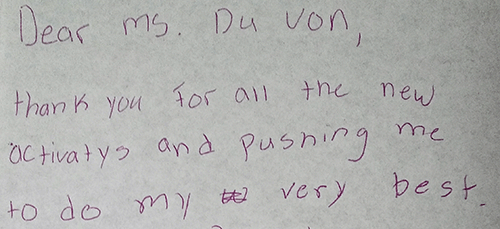 Dear ms. Du von,
thank you for all the new
activatys and pushing me
to do my very best.